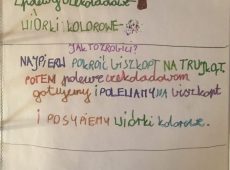 WIÓRKI KOLOROWE-
JAK TO ZROBIĆ?
NAJPIERW POKROIĆ BISZKOPT NA TRUJKĄT.
POTEM polewe czekoladowom
gotujemy i POLEWAMY NA biszkopt
i POSYPIEMY wiórki kolorowe.